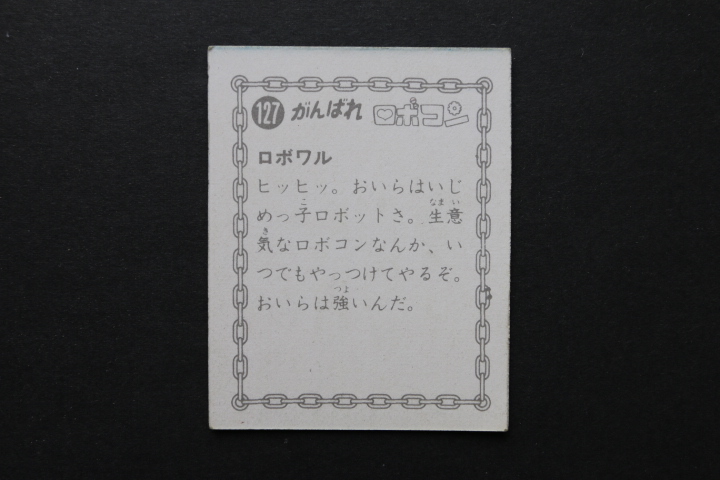 127 がんばれ ロボコン
ロボワル
ヒッヒッ。おいらはいじ
めっ子ロボットさ。生意
気なロボコンなんか、い
つでもやっつけてやるぞ。
おいらは強いんだ。